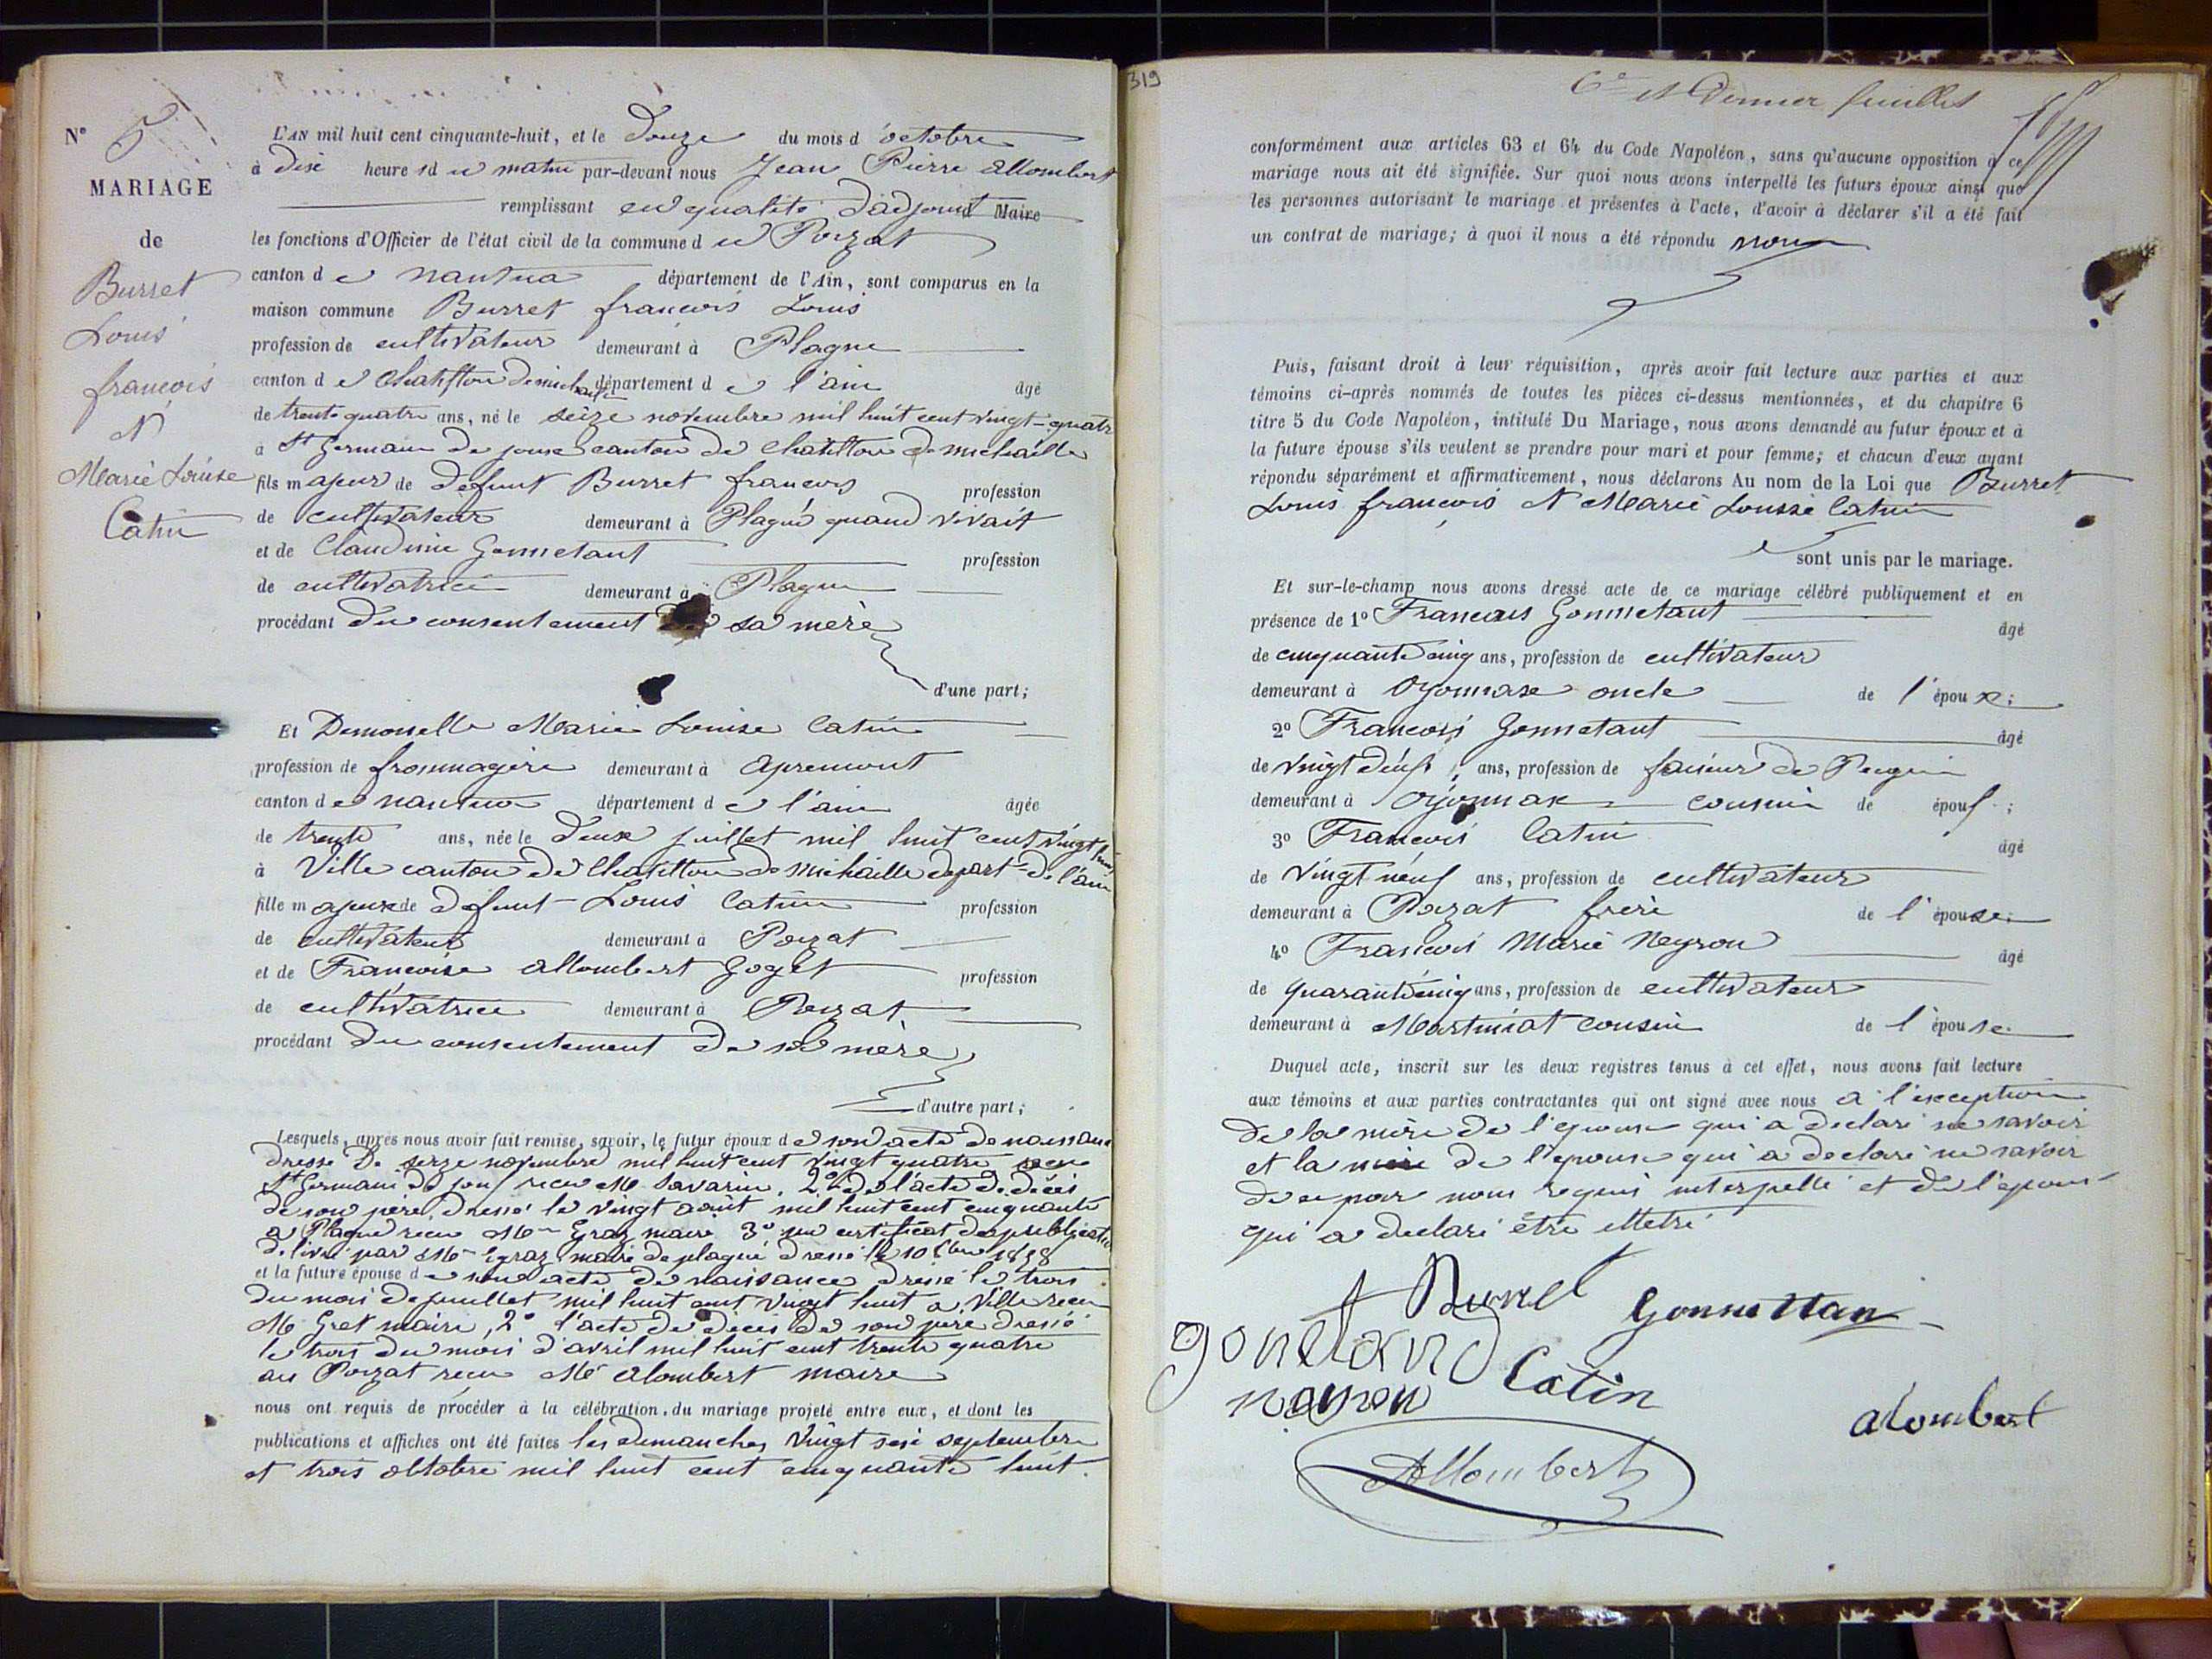 N° 5
MARIAGE
de
Burret
Louis
françois
Et
Marie Louise
Catin
L'AN mil huit cent cinquante-huit, et le Douze du mois d'octobre
à disé heures du matin par-devant nous Jean Pierre Allombert
remplissant en qualité d'adjoint Maire
les fonctions d'Officier de l'état civil de la commune de Poizat
canton de nantua département de l'Ain, sont comparus en la
maison commune Burret françois Louis
profession de cultivateur demeurant à Plagne
canton de Chatillon demichaille département de l'ain âgé
de trente quatre ans, né le seize novembre mil huit cent vingt-quatre
à St Germain de joux canton de Chatillon de michaille
fils majeur de defunt Burret françois profession
de cultivateur demeurant à Plagne quand vivait
et de Claudine Gonnetant profession
de cultivatrice demeurant à Plagne
procédant du consentement de sa mère
d'une part;
Et Demoiselle Marie Louise Catin
profession de frommagère demeurant à Apremont
canton de nantua département de l'ain âgée
de trente ans, née le deux juillet mil huit cent vingt huit
à Ville canton de Chatillon de michaille depart de l'ain
fille majeure de defunt Louis Catin profession
de cultivateur demeurant à Poizat
et de Françoise allombert Goget profession
de cultivatrice demeurant à Poizat
procédant du consentement de sa mère
d'autre part;
Lesquels, après nous avoir fait remise, savoir, le futur époux de son acte de naissance
dressé le seize novembre mil huit cent vingt quatre
St Germain de joux recu Mr Savarin. 2° de l'acte de décès
de son père dressé le vingt août mil huit cent cinquante
a Plagne recu Mr Graz maire 3° un certificat de publication
delivré par Mr Egraz maire de plagne dressé le 10 8bre 1858
et la future épouse de son acte de naissance dressé le trois
du mois de juillet mil huit cent vingt huit a Ville recu
Mr Gret maire, 2° l'acte de décès de son père dressé
le trois du mois d'avril mil huit cent trente quatre
au Poizat recu Mr alombert maire
nous ont requis de procéder à la célébration du mariage projeté entre eux, et dont les
publications et affiches ont été faites les dimanches vingt sesé septembre
et trois obtobre mil huit cent cinquante huit.
319
6e et Dernier feuillet
conformément aux articles 63 et 64 du Code Napoléon, sans qu'aucune opposition à ce
mariage nous ait été signifiée. Sur quoi nous avons interpellé les futurs époux ainsi que
les personnes autorisant le mariage et présentes à l'acte, d'avoir à déclarer s'il a été fait
un contrat de mariage; à quoi il nous a été répondu non
Puis, faisant droit à leur réquisition, après avoir fait lecture aux parties et aux
témoins ci-après nommés de toutes les pièces ci-dessus mentionnées, et du chapitre 6
titre 5 du Code Napoléon, intitulé Du Mariage, nous avons demandé au futur époux et à
la future épouse s'ils veulent se prendre pour mari et pour femme; et chacun d'eux ayant
répondu séparément et affirmativement, nous déclarons Au nom de la Loi que Burret
Louis françois Et Marie Lousse Catin
sont unis par le mariage.
Et sur-le-champ nous avons dressé acte de ce mariage célébré publiquement et en
présence de 1° Francois Gonnetant âgé
de cinquante cinq ans, profession de cultivateur
demeurant à Oyonnaxe oncle de l'époux;
2° François Gonnetant âgé
de vingt deux ans, profession de faiseur de Peigne
demeurant à Oyonnax cousin de époux;
3° François Catin âgé
de vingt neuf ans, profession de cultivateur
demeurant à Poizat frère de l'épouse;
4° François Marie Neyron âgé
de quarante cinq ans, profession de cultivateur
demeurant à Martiniat cousin de l'épouse
Duquel acte, inscrit sur les deux registres tenus à cet effet, nous avons fait lecture
aux témoins et aux parties contractantes qui ont signé avec nous a l'exception
de la mère de l'epouse qui a declaré ne savoir
et la mère de l'epouse qui a declaré ne savoir
de ce par nous requis interpellé et de l'epouse
qui a declaré être illetré
Burret Gonnettan
gonetand Catin
neyron
alombert
Allombert